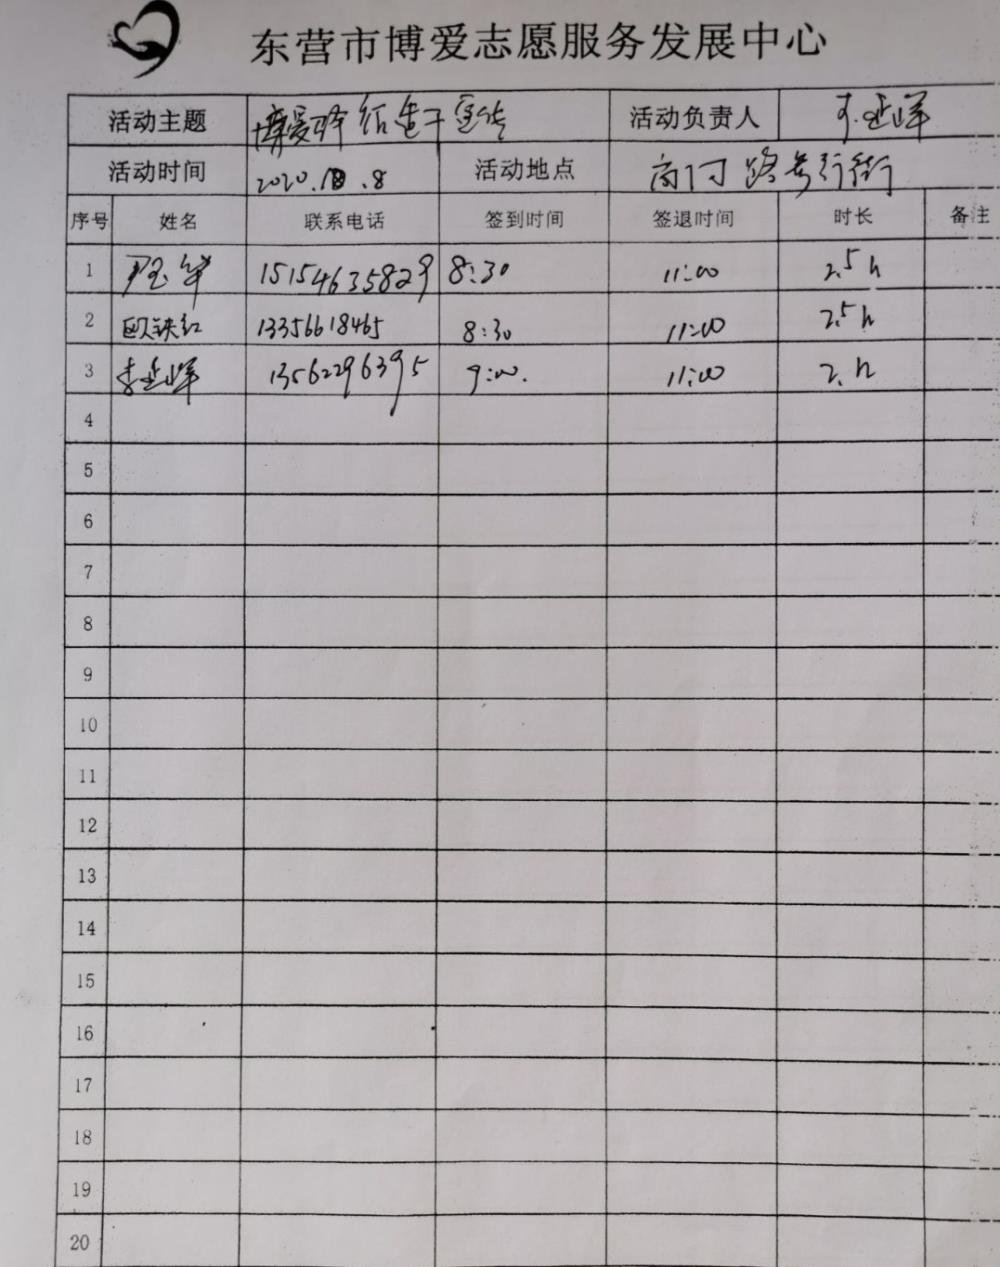 东营市博爱志愿服务发展中心
活动主题 博爱 宣传 活动负责人
活动时间 2020.10.8 活动地点 步行街
序号 姓名 联系电话 签到时间 签退时间 时长 备注
1 15154635829 8:30 11:00 2.5h
2 13356618465 8:30 11:00 2.5h
3 李 13562296395 9:00. 11:00 2.h
4
5
6
7
8
9
10
11
12
13
14
15
16
17
18
19
20